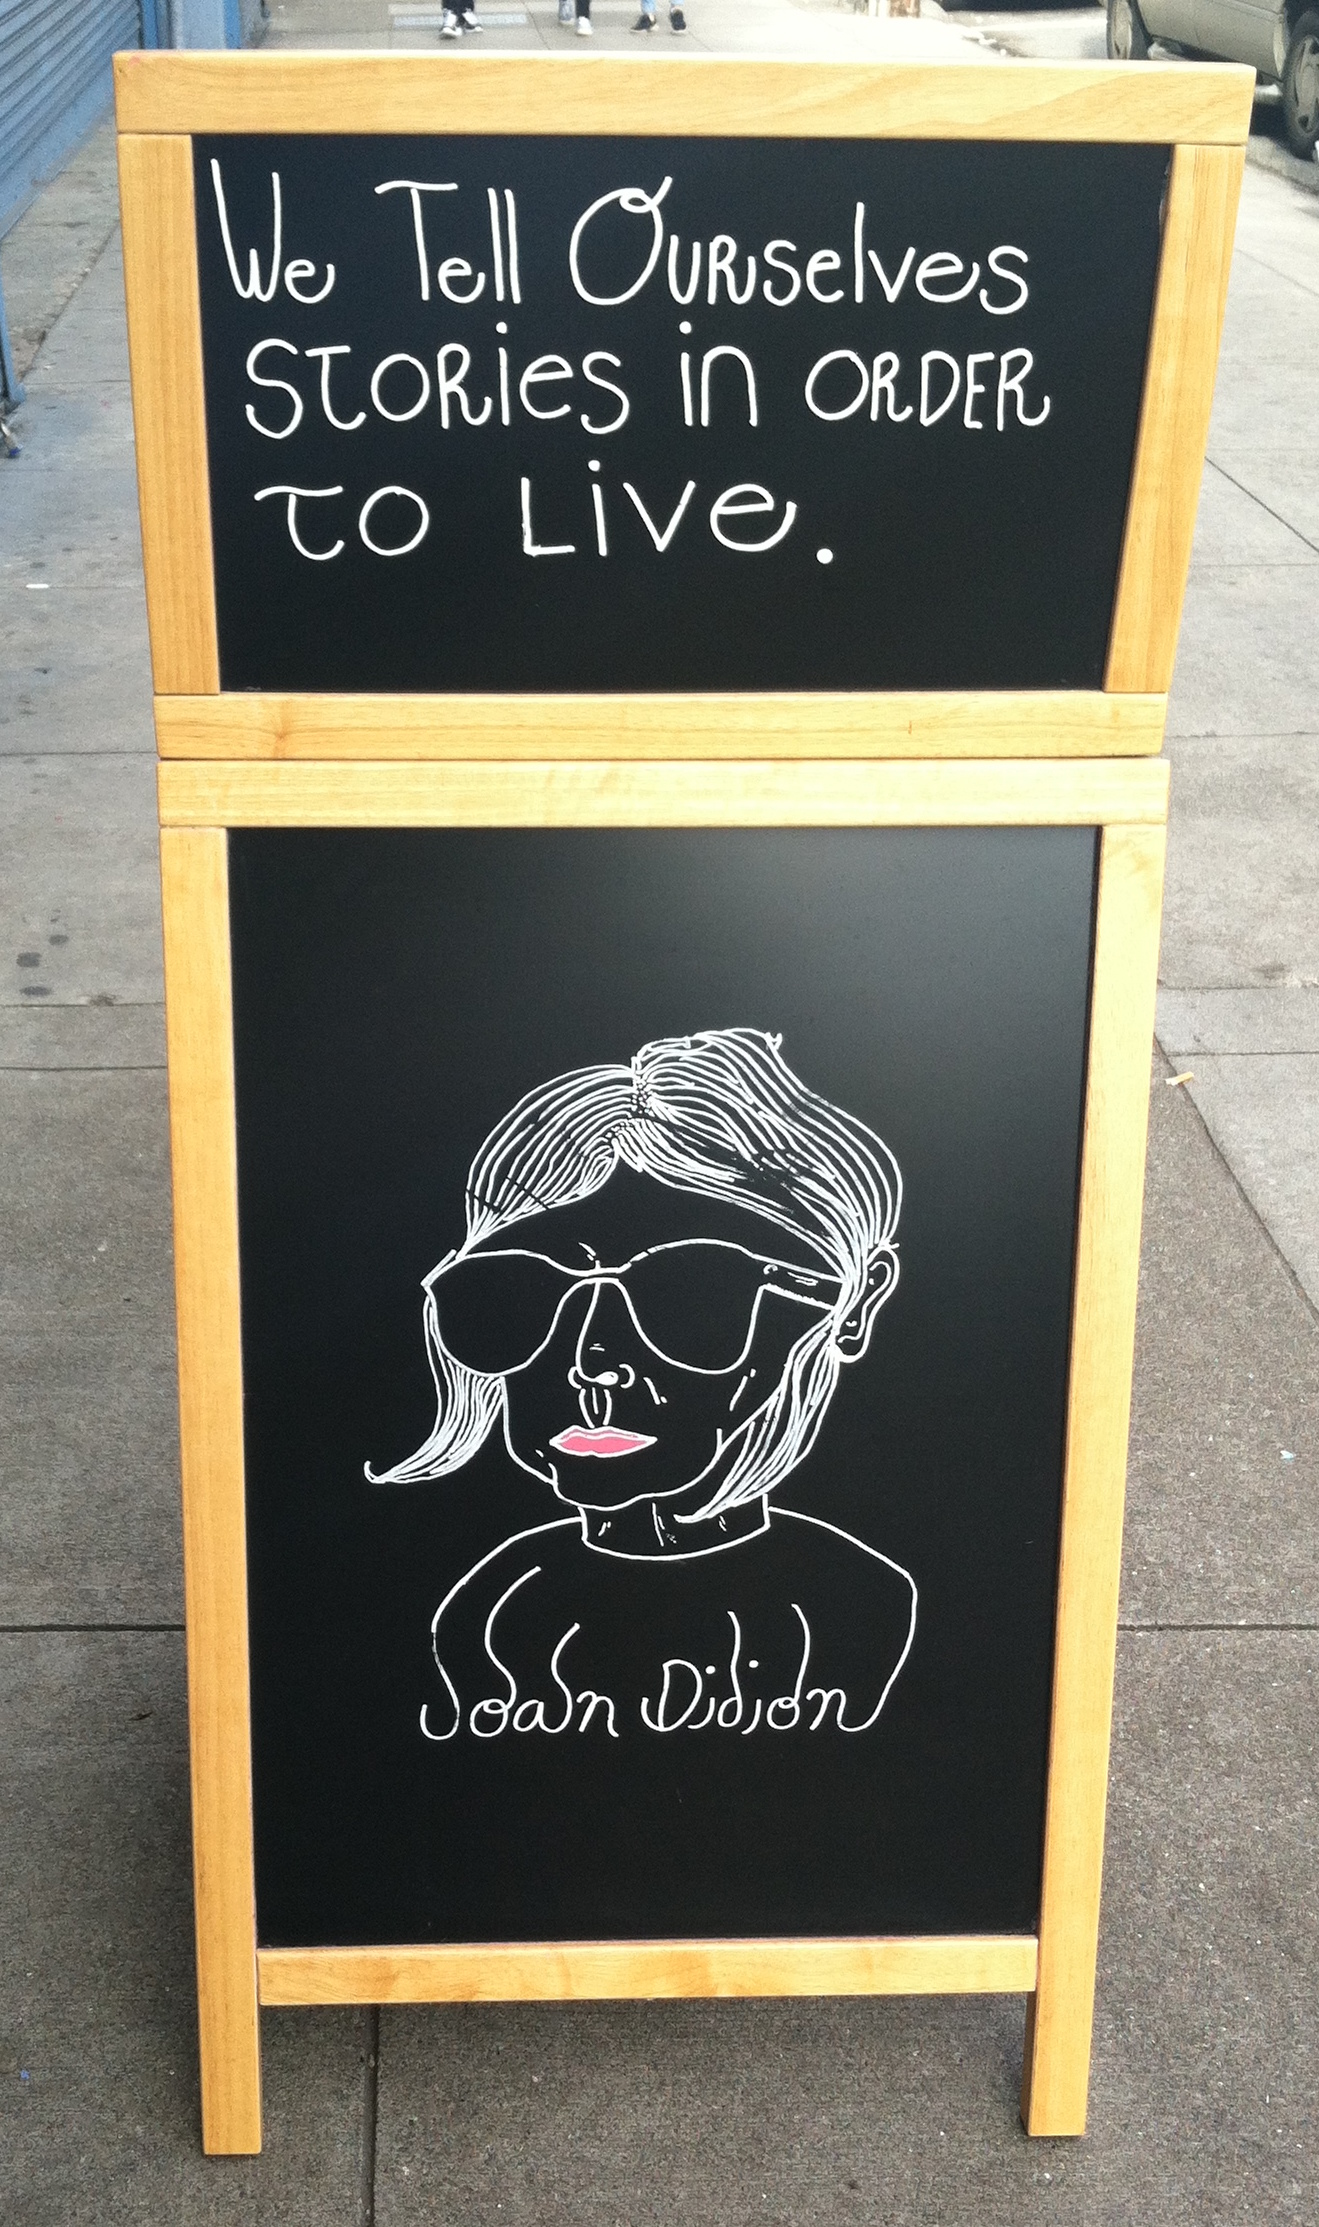 We Tell Ourselves
STORies in ORDER
TO Live.
Joan Didion